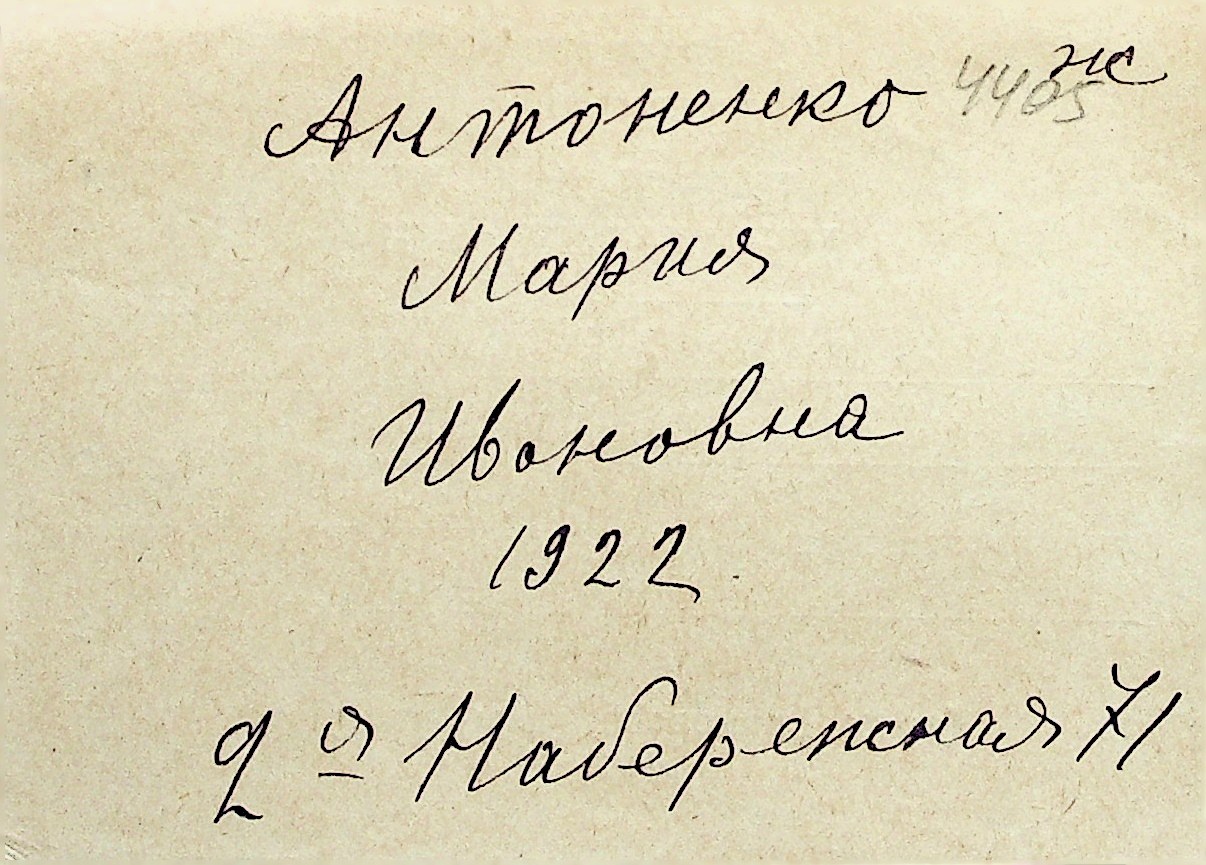 Антоненко 4405 ж
Мария
Ивановна
1922
2 я Набережная 71